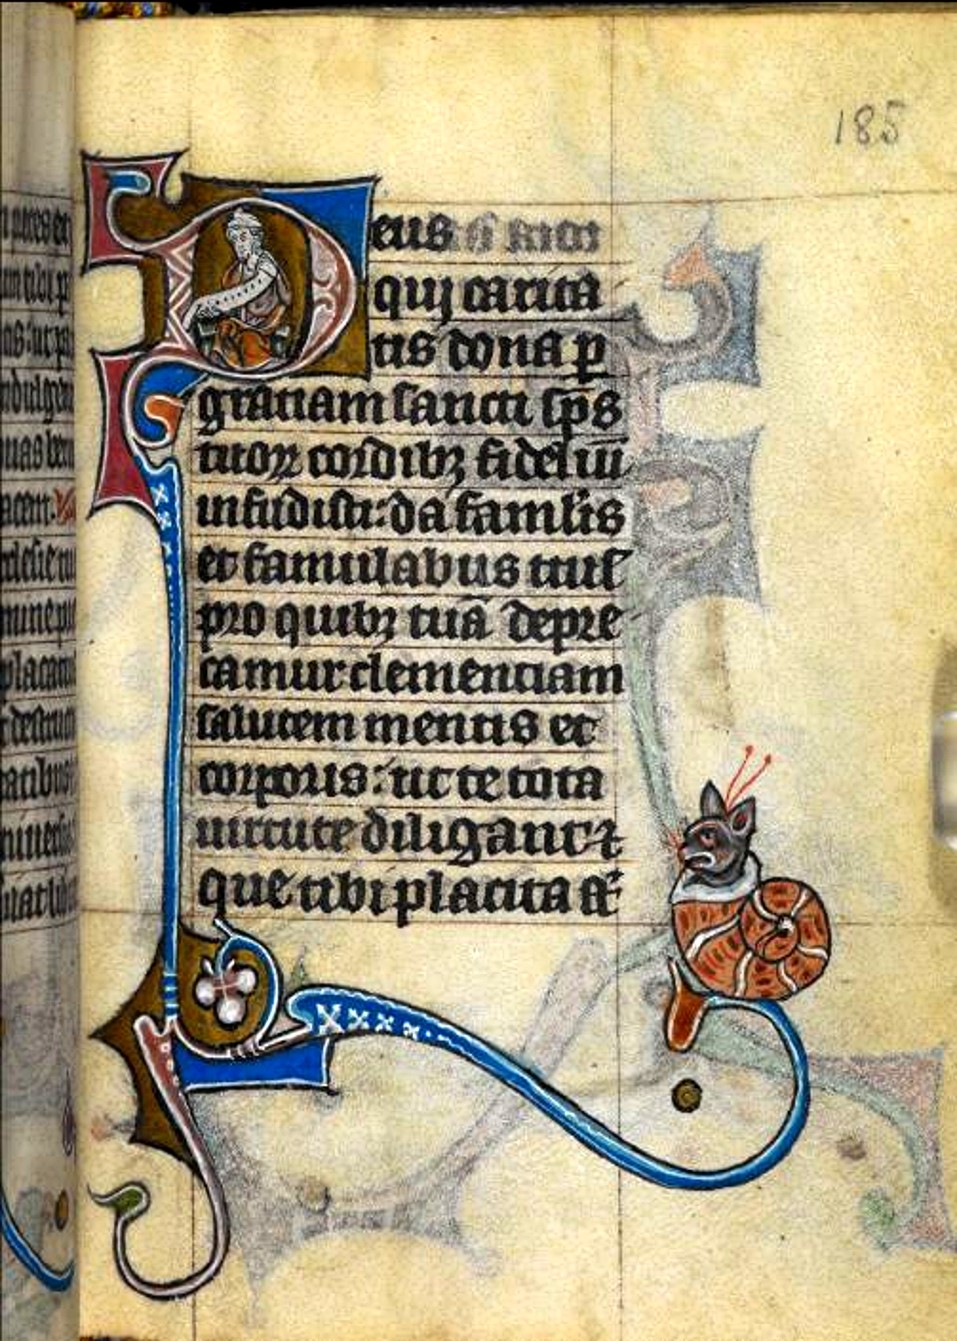 185
Deus
qui carita
tis dona p
gratiam sancti sps
tuoꝝ cordibꝫ fideliū
infudisti: da famlis
et famulabus tuis
pro quibꝫ tuā depre
camur clementiam
salutem mentis et
corporis: ut te tota
uirtute diligant ⁊
que tibi placita st̄